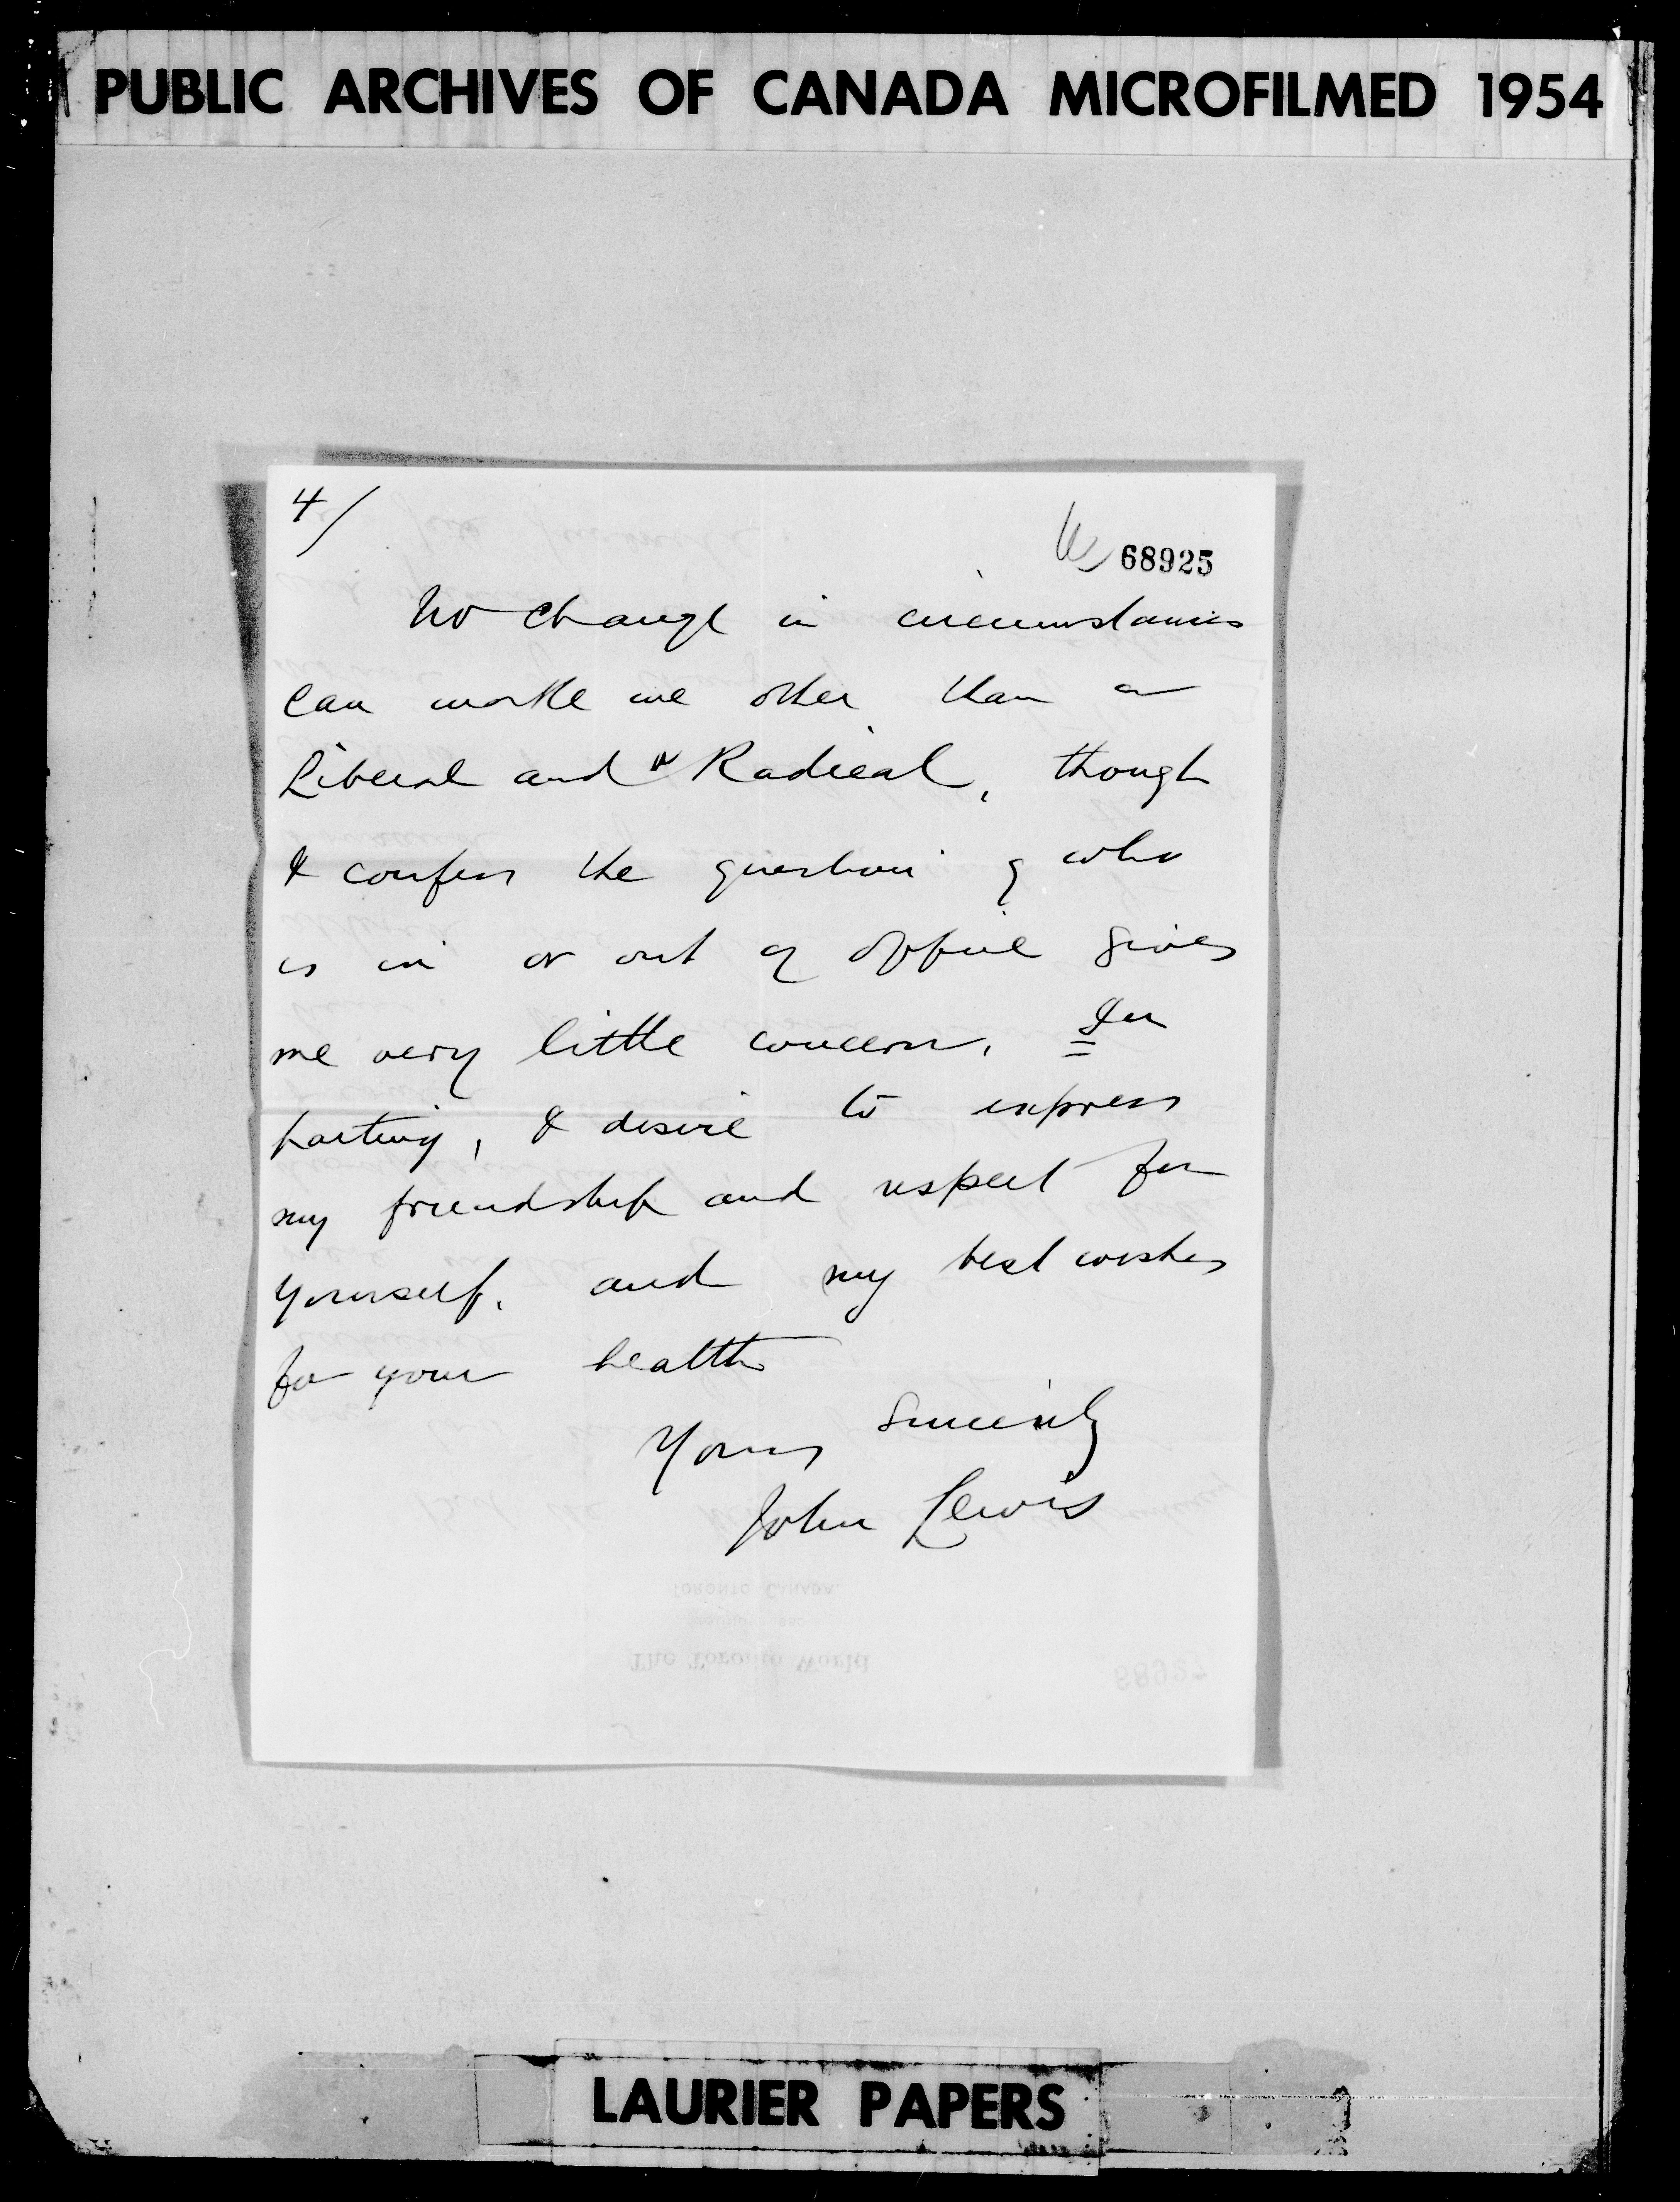 PUBLIC ARCHIVES OF CANADA MICROFILMED 1954
4/
68925
No change in circumstances
can make me other than a
Liberal and a Radical, though
I confess the question of who
is in or out of office gives
me very little concern. In
parting, I desire to express
my friendship and respect for
yourself, and my best wishes
for your health
Yours Sincerely
John Lewis
TORONTO CANADA
The Toronto World
LAURIER PAPERS